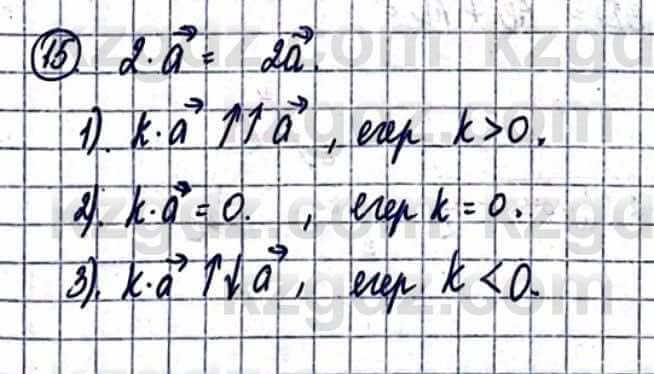 15 2·a⃗ = 2a⃗.
1). k·a⃗ ↑↑ a⃗, егер k>0.
2). k·a⃗ = 0. , егер k = 0.
3). k·a⃗ ↑↓ a⃗, егер k<0.